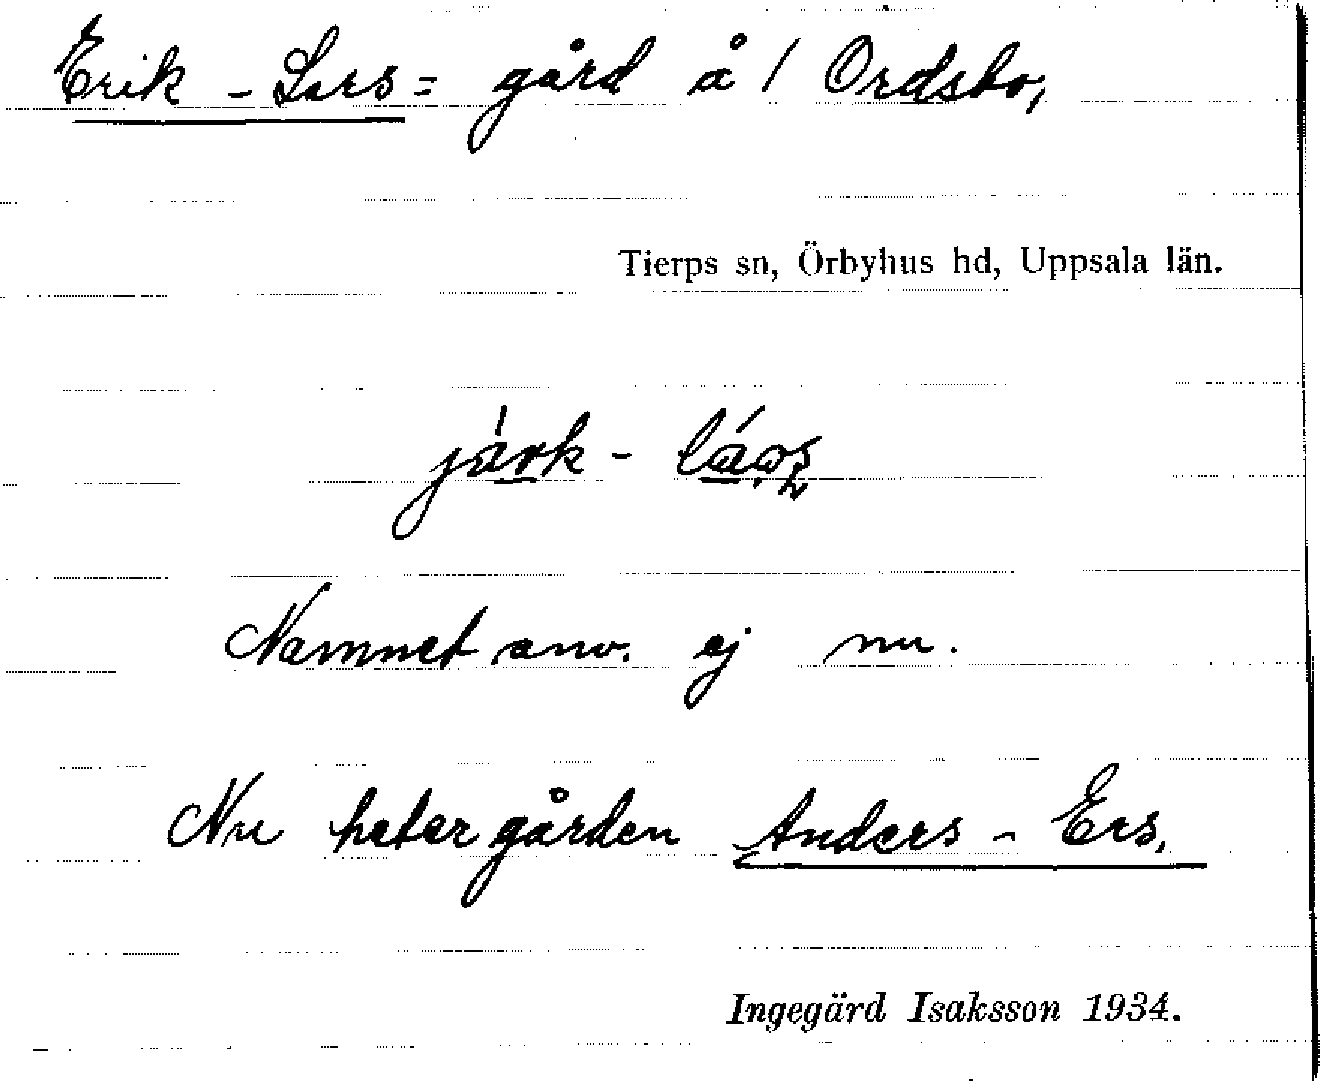 Erik - Lars = gård å 1 Ordsbo,
Tierps sn, Örbyhus hd, Uppsala län.
Namnet anv. ej nu.
Nu heter gården Anders - Ers.
Ingegärd Isaksson 1934.